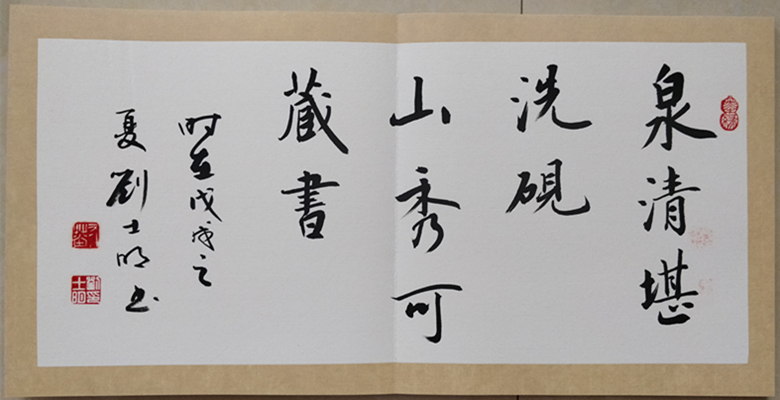 泉清堪
洗硯
山秀可
藏書
时在戊戌之
夏劉士明书